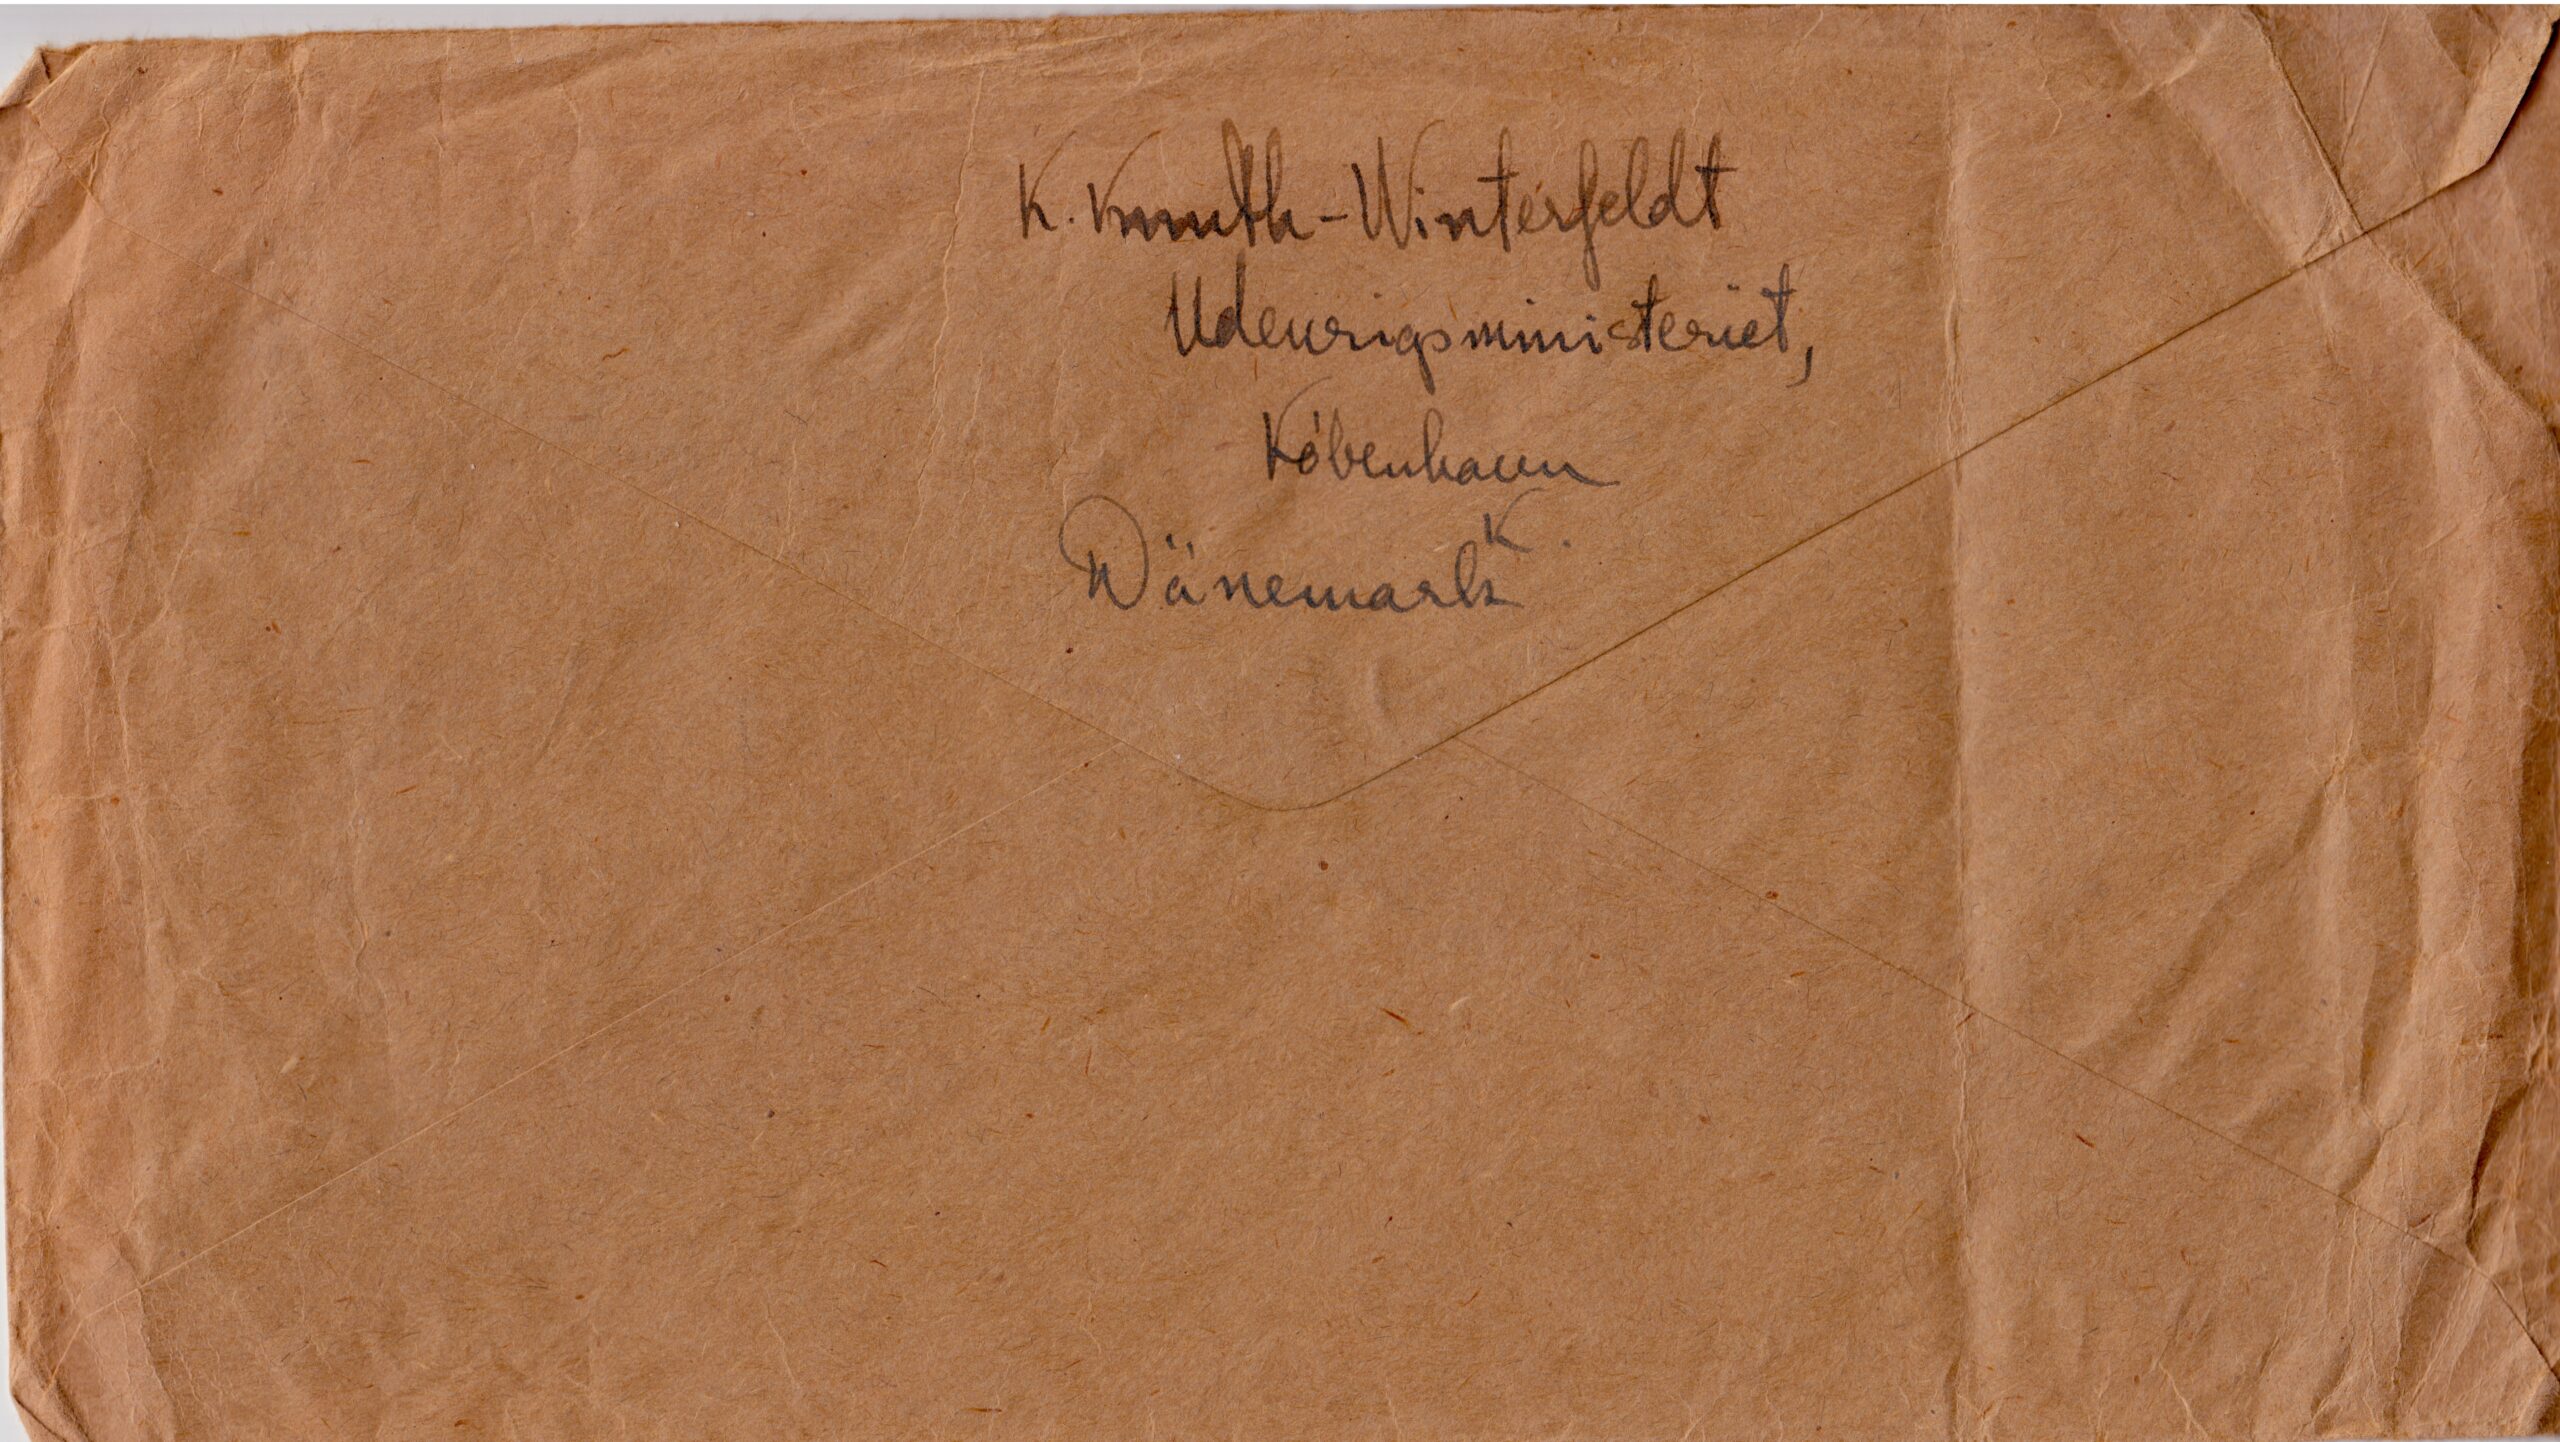 K. Knuth-Winterfeldt
Udenrigsministeriet,
København
K.
Dänemark